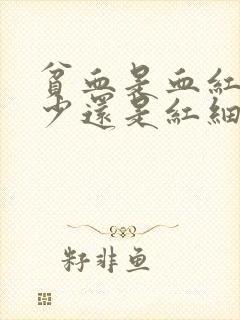 貧血是血紅
少還是紅細
籽非鱼